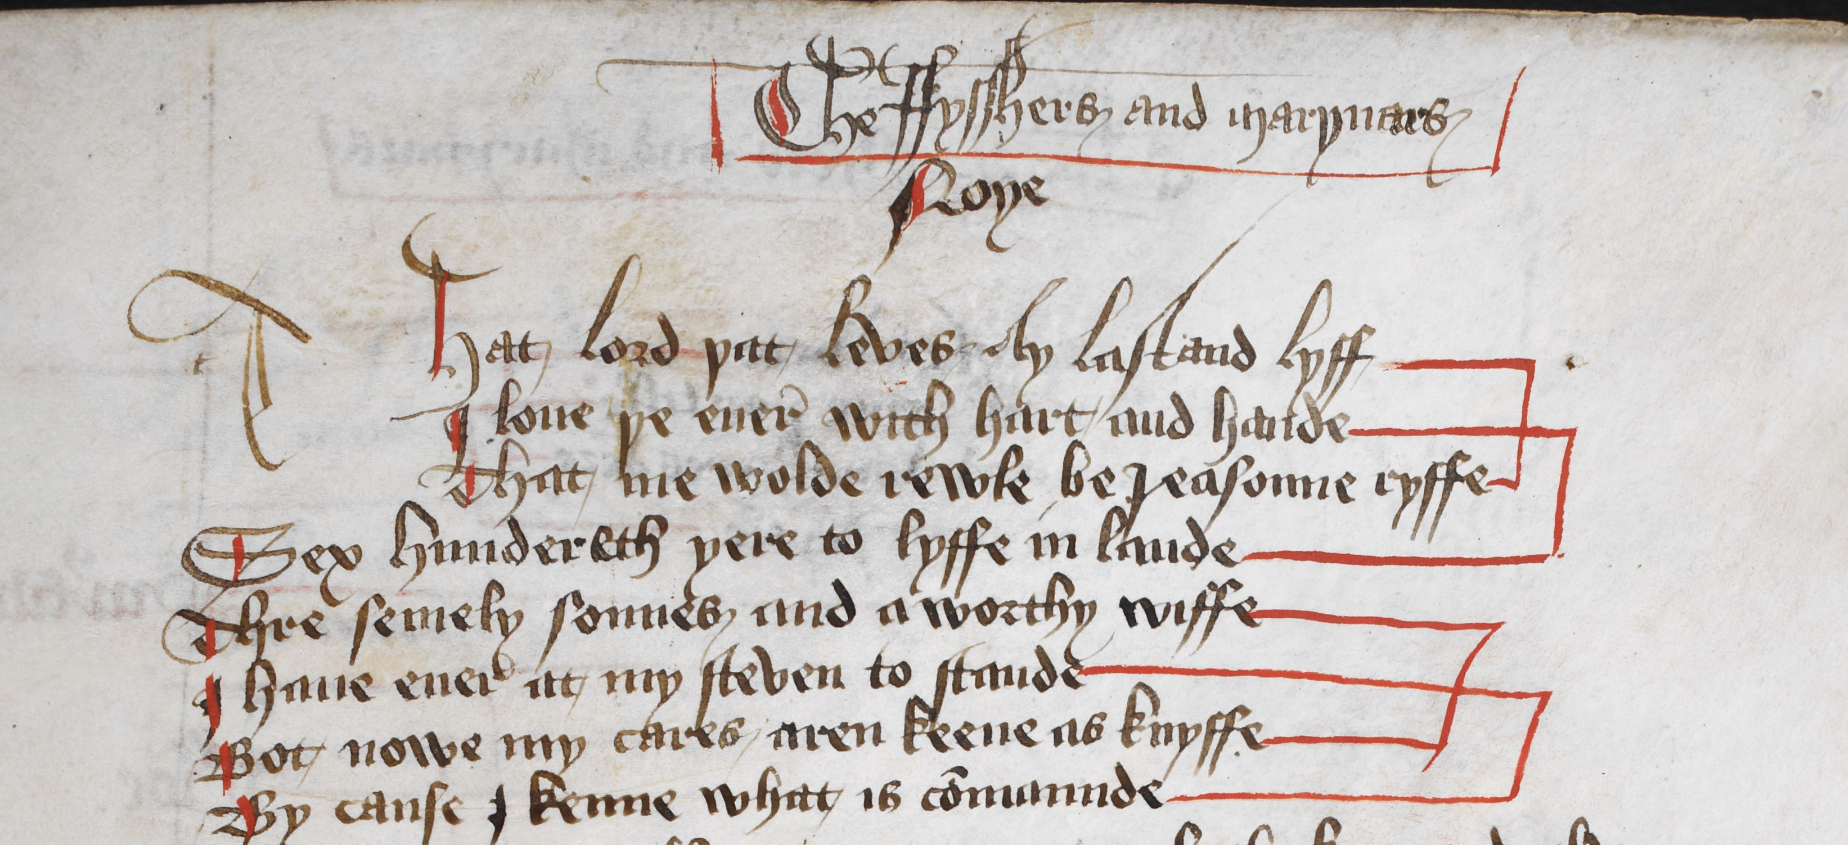 The ffysshers and marynars
Noye
That lord þat leves ay lastand lyff
I loue þe euer with hart and hande
That me wolde rewle be reasonne ryffe
Sex hundereth yere to lyffe in lande
Thre semely sonnes and a worthy wiffe
I haue euer at my steven to stande
Bot nowe my cares aren keene as knyffe
By cause I kenne what is cōmaunde